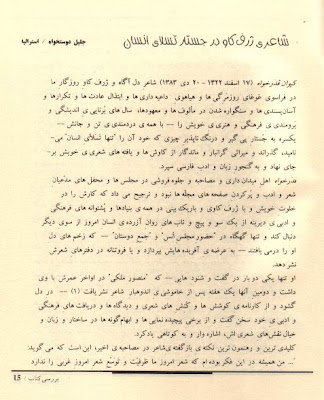 شاعری ژرف کاو در جستار تسلای انسان
جلیل دوستخواه / استرالیا
کیوان قدرخواه (۱۷ اسفند ۱۳۲۲ - ۲۰ دی ۱۳۸۳) شاعر دل آگاه و ژرف کاو روزگار ما
در فراسوی غوغای روزمرگی ها و هیاهوی داعیه داری ها و ابتذال عادت ها و تکرارها و
آسان پسندی ها و سنگواره شدن در مألوف ها و معهودها، سال های برنایی و اندیشگی و
برومندی ی فرهنگی و هنری ی خویش را — با همه ی دردمندی ی تن و جانش —
یکسره به جستار پی گیر و درنگ ناپذیر چیزی که خود آن را "تنها تسلای انسان" می
نامید، گذراند و میراثی گرانبار و ماندگار از کاوش ها و یافته های شعری ی خویش بر
جای نهاد و به گنجور زبان و ادب فارسی سپرد.
قدرخواه اهل میدان داری و مصاحبه و جلوه فروشی در مجلس ها و محفل های مدعیان
شعر و ادب و پرکردن صفحه های مجله ها نبود و ترجیح می داد که کارش را در
خلوت خویش و با ژرف کاوی و باریک بینی در همه ی بنیادها و پشتوانه های فرهنگی
و ادبی ی دیرینه از یک سو و پیچ و تاب های روان آزرده ی انسان امروز از سوی دیگر
دنبال کند و تنها گهگاه در "حضور مجلس انس" و "جمع دوستان" — که زخم های دل
او را درمی یافتند — به عرضه ی آفریده هایش بپردازد و یا فروتنانه در دفترهای شعرش
نشر دهد.
او تنها یکی دو بار در گفت و شنود هایی — که "منصور ملکی" در اواخر عمرش با وی
داشت و دومین آنها یک هفته پس از خاموشی ی اندوهبار شاعر نشر یافت (۱) — در دل
گشود و از کارنامه ی کوشش ها و کنش های شعری و دیدگاه ها و دریافت های فرهنگی
و ادبی ی خود سخن گفت و از برخی پیچیده نمایی ها و ابهام گونه ها در ساختار و زبان و
خیال نقش های شعری اش، اشاره وار و به کوتاهی یاد کرد.
کلیدی ترین و رهنمون ترین نکته ی بازگفته ی شاعر در مصاحبه ی اخیر، این است که می گوید:
"... من همیشه در این فکر بوده ام که شعر امروز ما ظرفیت و توسّع شعر امروز غربی را ندارد.
بررسی کتاب / 15